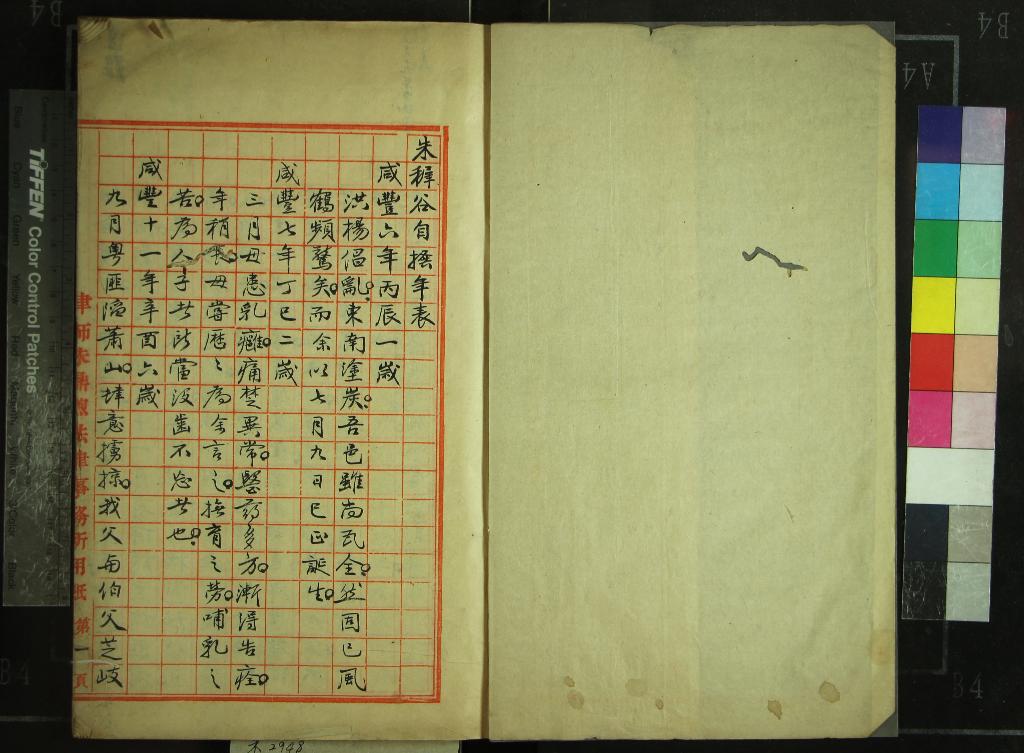 朱穉谷自撰年表
咸豐六年丙辰一歲
洪楊倡亂。東南塗炭。吾邑雖尚瓦全。然固已風
鶴頻驚矣。而余以七月九日巳正誕生。
咸豐七年丁巳二歲
三月母患乳癰。痛楚異常。醫药多方。漸得告痊。
年稍長。母嘗歴〻為余言之。撫育之勞。哺乳之
苦。為人子者所當没齒不忘者也。
咸豐十一年辛酉六歲
九月粤匪陷萧山。肆意擄掠。我父与伯父芝岐
律師朱 法律事務所用紙 第一頁
TIFFEN Color Control Patches
Blue Cyan Green Yellow Red Magenta Black
B4
A4
B4
B4
2948